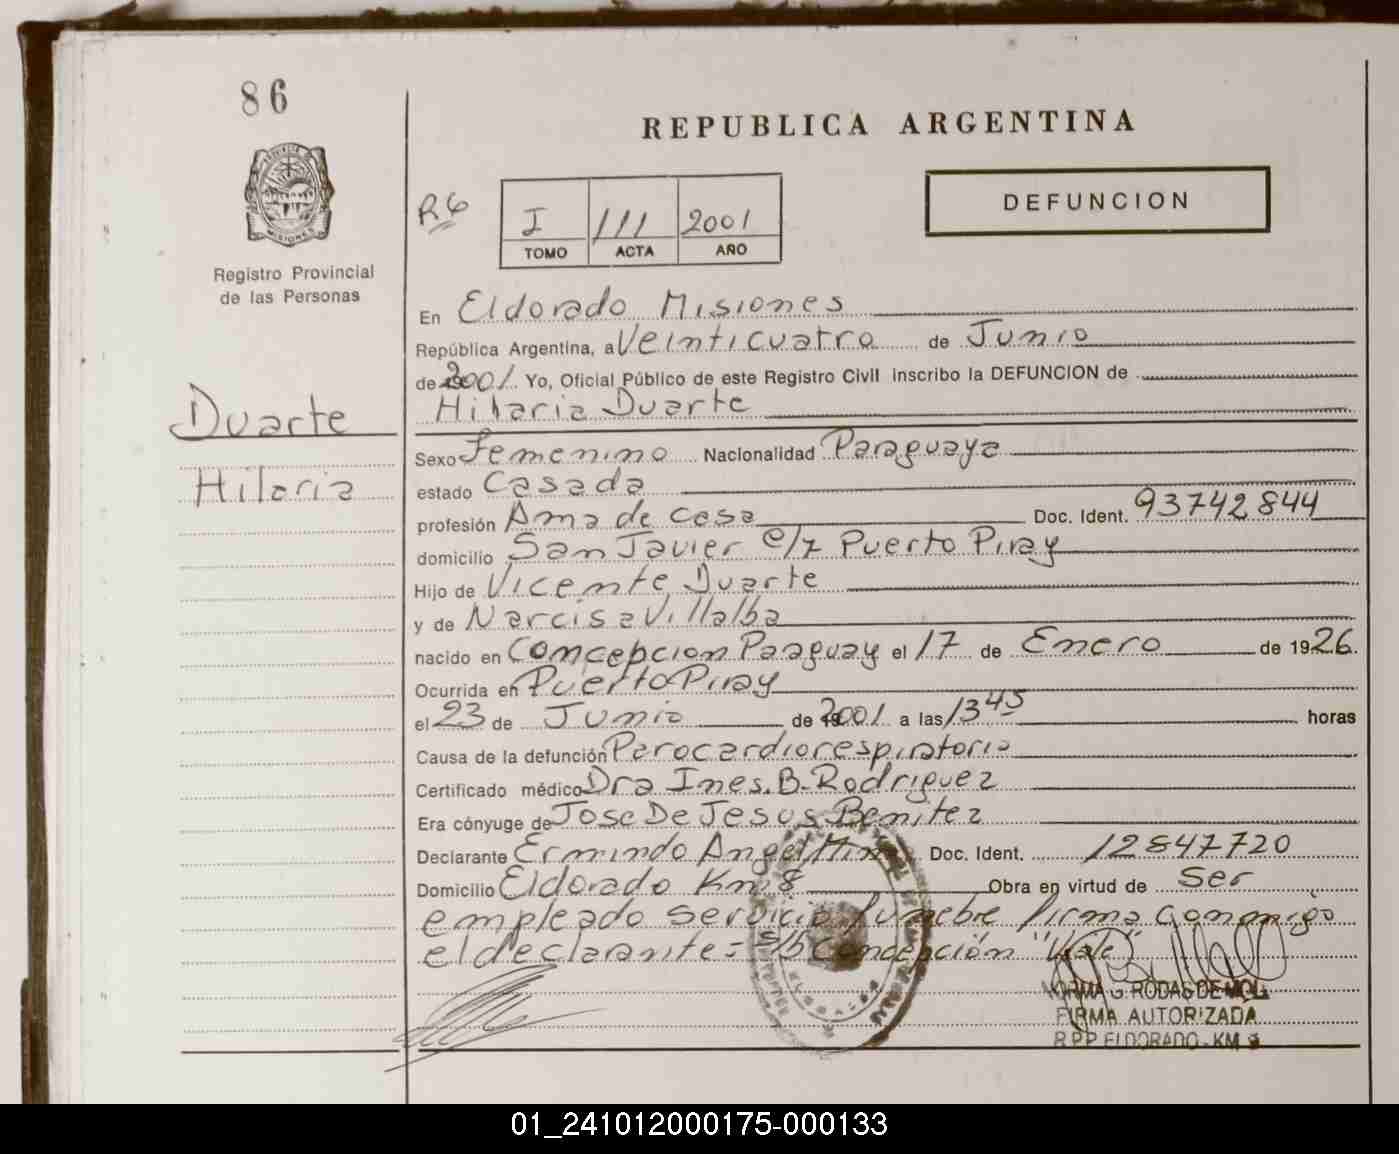 86
REPUBLICA ARGENTINA
PROVINCIA DE
MISIONES
Registro Provincial
de las Personas
R6
I 111 2001
TOMO ACTA AÑO
DEFUNCION
En Eldorado Misiones
República Argentina, a Veinticuatro de Junio
de 2001. Yo, Oficial Público de este Registro Civil inscribo la DEFUNCION de
Hilaria Duarte
Duarte
Hilaria
Sexo Femenino Nacionalidad Paraguaya
estado Casada
profesión Ama de casa Doc. Ident. 93742844
domicilio San Javier e/z Puerto Piray
Hijo de Vicente Duarte
y de Narcisa Villalba
nacido en Concepcion Paraguay el 17 de Enero de 1926.
Ocurrida en Puerto Piray
el 23 de Junio de 2001 a las 13 45 horas
Causa de la defunción Parocardiorespiratorio
Certificado médico Dra Ines. B. Rodriguez
Era cónyuge de Jose De Jesus Benitez
Declarante Ermindo Angel Doc. Ident. 12847720
Domicilio Eldorado Km 8 Obra en virtud de ser
empleado servicio funebre firma conmigo
el declarante = s/b Concepción "Vale"
NORMA G. RODAS DE MOL
FIRMA AUTORIZADA
R.P.P. ELDORADO - KM 9
01_241012000175-000133